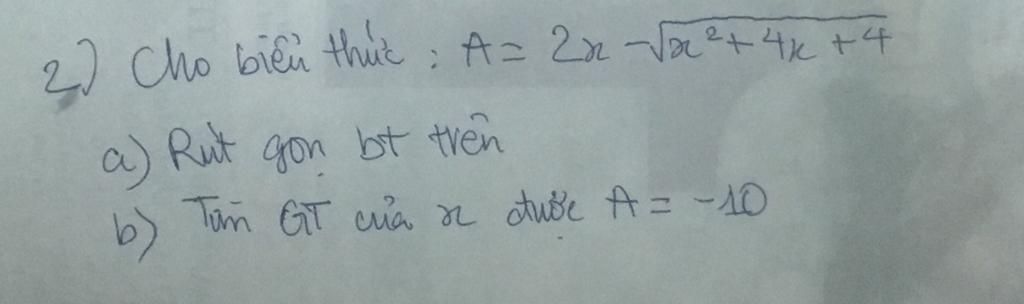 2) Cho biểu thức : A = 2x - √(x² + 4x + 4)
a) Rút gọn bt trên
b) Tìm GT của x được A = -10